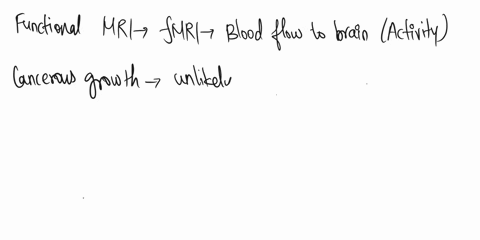 Functional MRI→ fMRI→ Blood flow to brain (Activity)
Cancerous growth → unlikely